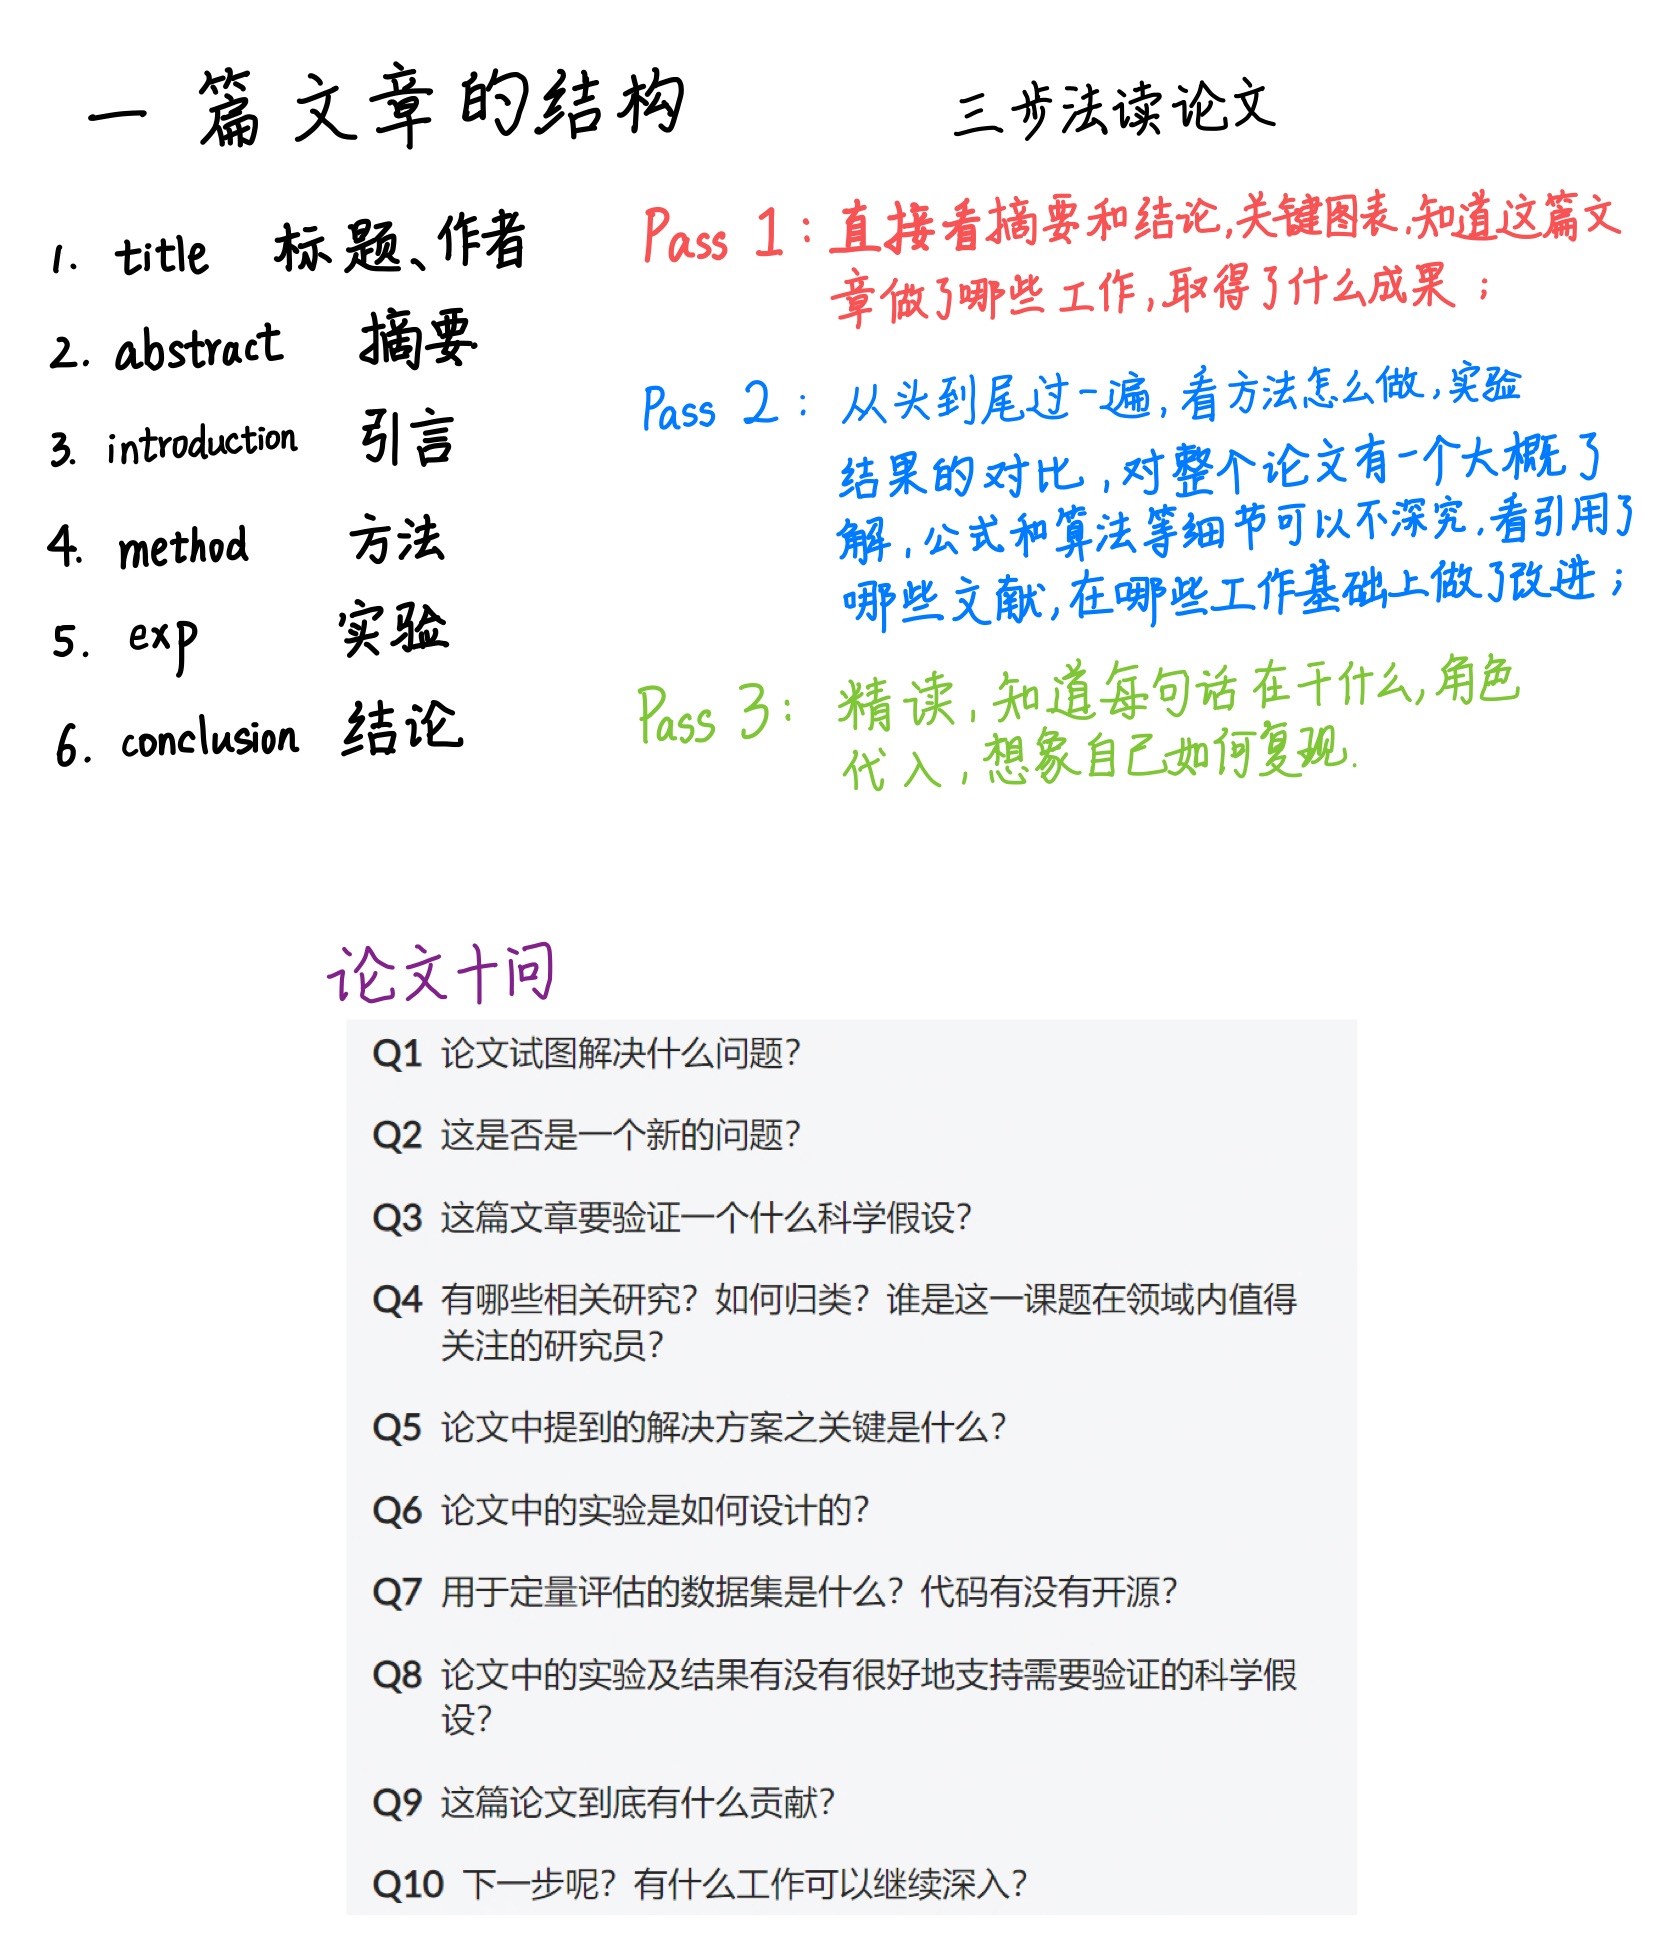 一篇文章的结构
1. title 标题、作者
2. abstract 摘要
3. introduction 引言
4. method 方法
5. exp 实验
6. conclusion 结论
三步法读论文
Pass 1：直接看摘要和结论,关键图表.知道这篇文
章做了哪些工作,取得了什么成果；
Pass 2：从头到尾过一遍,看方法怎么做,实验
结果的对比,对整个论文有一个大概了
解,公式和算法等细节可以不深究,看引用了
哪些文献,在哪些工作基础上做了改进；
Pass 3：精读,知道每句话在干什么,角色
代入,想象自己如何复现.
论文十问
Q1 论文试图解决什么问题？
Q2 这是否是一个新的问题？
Q3 这篇文章要验证一个什么科学假设？
Q4 有哪些相关研究？如何归类？谁是这一课题在领域内值得
关注的研究员？
Q5 论文中提到的解决方案之关键是什么？
Q6 论文中的实验是如何设计的？
Q7 用于定量评估的数据集是什么？代码有没有开源？
Q8 论文中的实验及结果有没有很好地支持需要验证的科学假
设？
Q9 这篇论文到底有什么贡献？
Q10 下一步呢？有什么工作可以继续深入？